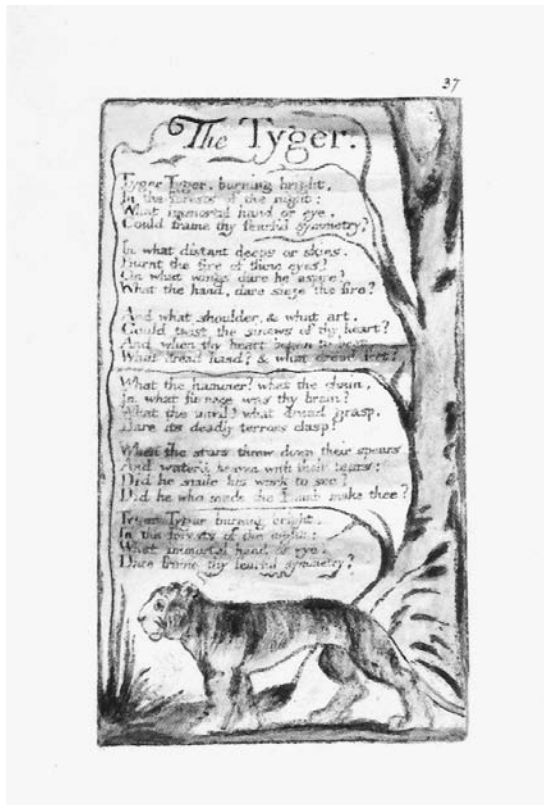 37
The Tyger.
Tyger Tyger, burning bright,
In the forests of the night:
What immortal hand or eye,
Could frame thy fearful symmetry?
In what distant deeps or skies,
Burnt the fire of thine eyes?
On what wings dare he aspire?
What the hand, dare sieze the fire?
And what shoulder, & what art,
Could twist the sinews of thy heart?
And when thy heart began to beat,
What dread hand? & what dread feet?
What the hammer? what the chain,
In what furnace was thy brain?
What the anvil? what dread grasp,
Dare its deadly terrors clasp?
When the stars threw down their spears
And water'd heaven with their tears:
Did he smile his work to see?
Did he who made the Lamb make thee?
Tyger Tyger burning bright,
In the forests of the night:
What immortal hand or eye,
Dare frame thy fearful symmetry?